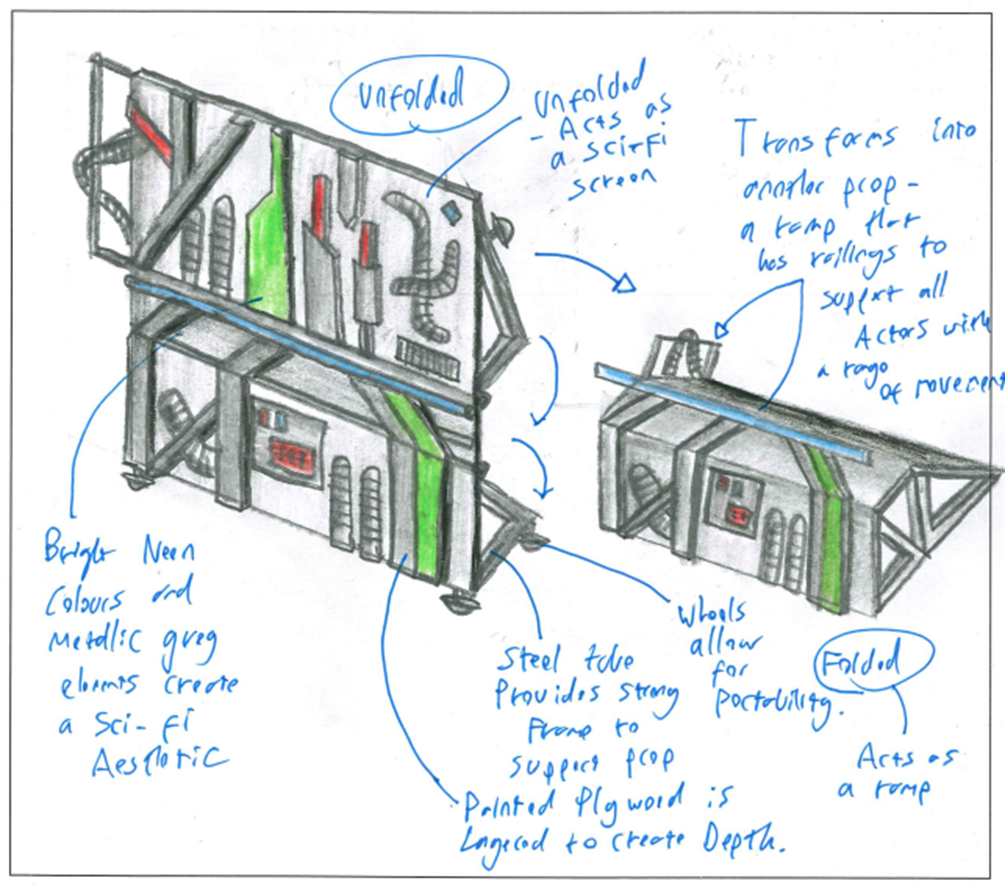 Unfolded
Unfolded
- Acts as
a sci-fi
screen
Transforms into
another prop -
a ramp that
has railings to
support all
Actors with
a range
of movement
Bright Neon
Colours and
Metallic grey
elements create
a Sci-fi
Aesthetic
Steel tube
Provides strong
Frame to
support prop
Wheels
allow
for
portability.
Folded
Acts as
a ramp
Painted Plywood is
Layered to create Depth.